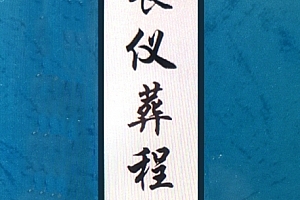 仪葬程